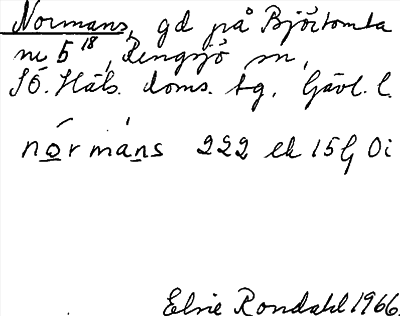 Normans, gd på Björtomta
nr 5¹⁸, Rengsjö sn,
Sö. Häls. doms. tg. Gävl. l.
nórmáns 222 ek 15G Oi
Elsie Rondahl 1966.